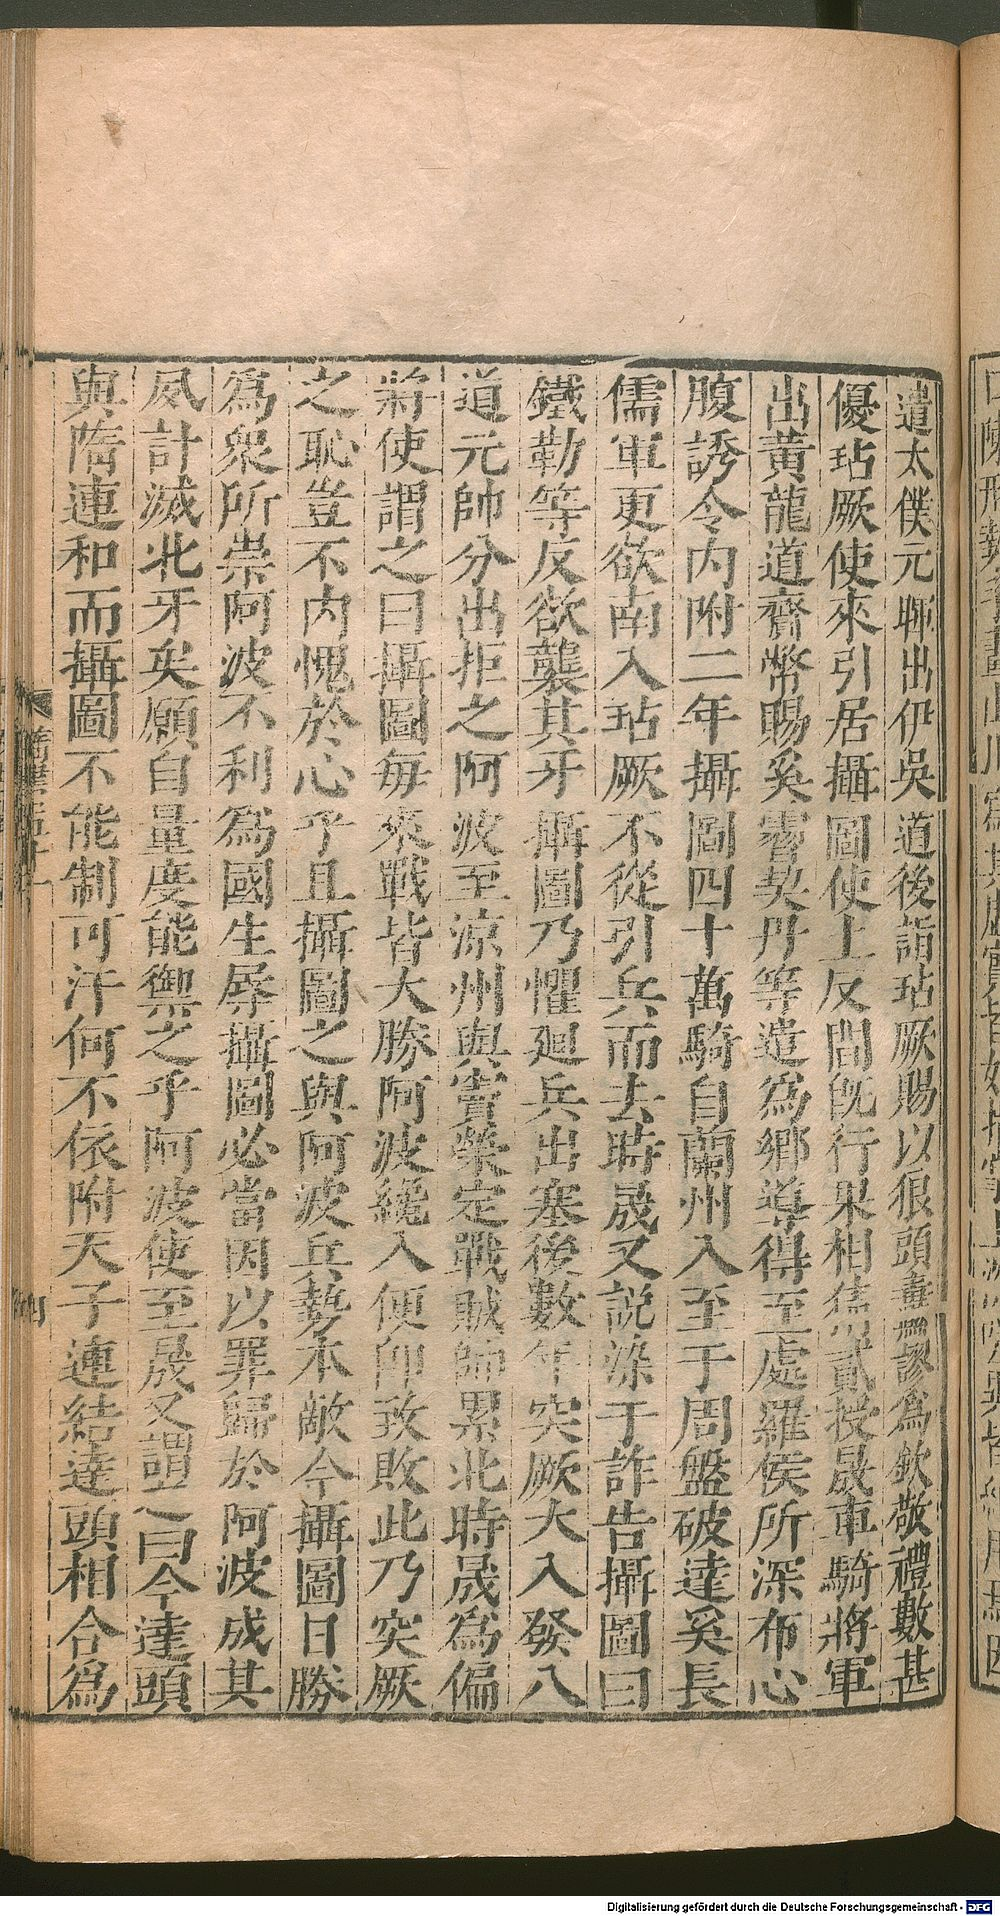 遣太僕元暉出伊吳道後詣玷厥賜以狼頭纛謬爲欽敬禮數甚
優玷厥使來引居攝圖使上反間旣行果相猜貳授晟車騎將軍
出黃龍道齎幣賜奚霫契丹等遣爲鄉導得至處羅侯所深布心
腹誘令内附二年攝圖四十萬騎自蘭州入至于周盤破達奚長
儒軍更欲南入玷厥不從引兵而去時晟又說染于詐告攝圖曰
鐵勒等反欲襲其牙攝圖乃懼廻兵出塞後數年突厥大入發八
道元帥分出拒之阿波至涼州與竇榮定戰賊師累北時晟爲偏
將使謂之曰攝圖每來戰皆大勝阿波纔入便卽致敗此乃突厥
之恥豈不内愧於心乎且攝圖之與阿波兵勢本敵今攝圖日勝
爲衆所崇阿波不利爲國生辱攝圖必當因以罪歸於阿波成其
夙計滅北牙矣願自量度能禦之乎阿波使至晟又謂之曰今達頭
與隋連和而攝圖不能制可汗何不依附天子連結達頭相合爲
Digitalisierung gefördert durch die Deutsche Forschungsgemeinschaft - DFG